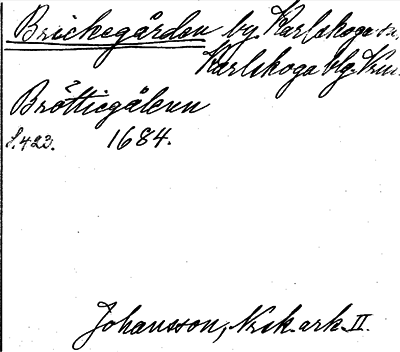 Brickegården by. Karlskoga sn,
Karlskoga blg. Vrm.
Bröttiegålenn
s. 423. 1684.
Johansson, Nrk. ark. II.